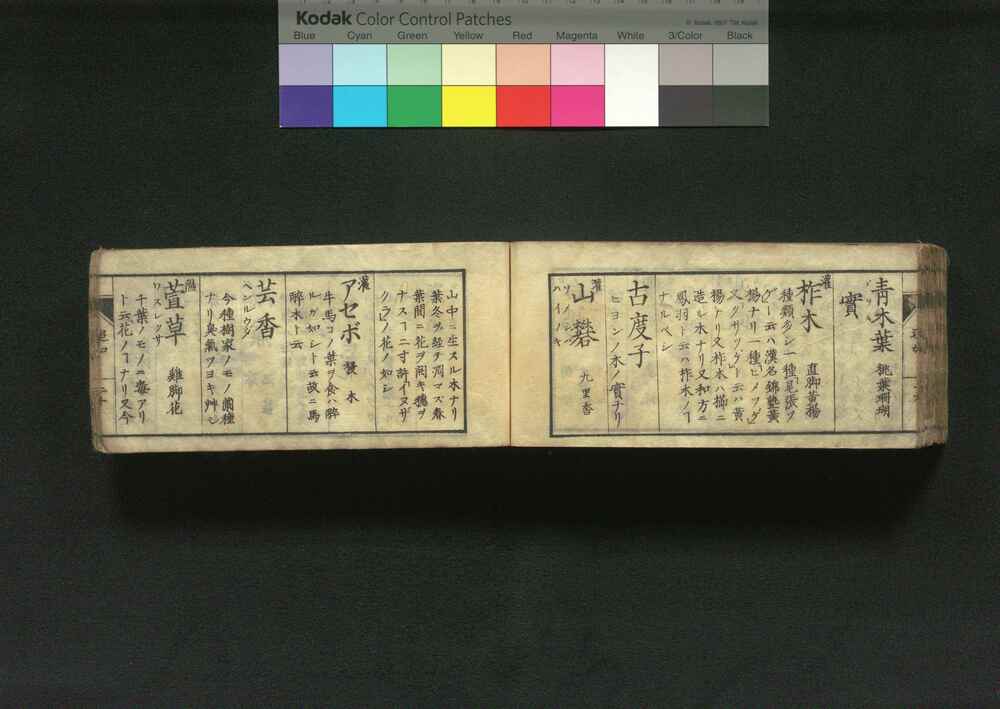 Kodak Color Control Patches
© Kodak, 2007 TM: Kodak
Blue Cyan Green Yellow Red Magenta White 3/Color Black
青木葉 桃葉珊瑚
實
灌
柞木 直脚黄楊
種類多シ一種尾張ヲ
グート云ハ漢名錦熟黄
楊ナリ一種ヒメツゲ
又クサツゲト云ハ黄
楊ナリ又柞木ハ櫛ニ
造ル木ナリ又和方ニ
鳳羽ト云ハ柞木ノヿ
ナルベシ
古度子
ヒヨンノ木ノ實ナリ
灌
山礬 九里香
ハイノキ
山中ニ生スル木ナリ
葉冬ヲ經テ凋マズ春
葉間ニ花ヲ開キ穗ヲ
ナスヿ二寸許イヌザ
クラノ花ノ如シ
灌
アセボ 木
牛馬コノ葉ヲ食ハ醉
ルガ如シト云故ニ馬
醉木ト云
芸香
ヘンルウダ
今種樹家ノモノ蘭種
ナリ臭氣ヲヨキ艸
萱草 雞脚花
ワスレグサ
千葉ノモノニ毒アリ
ト云花ノヿナリ又今